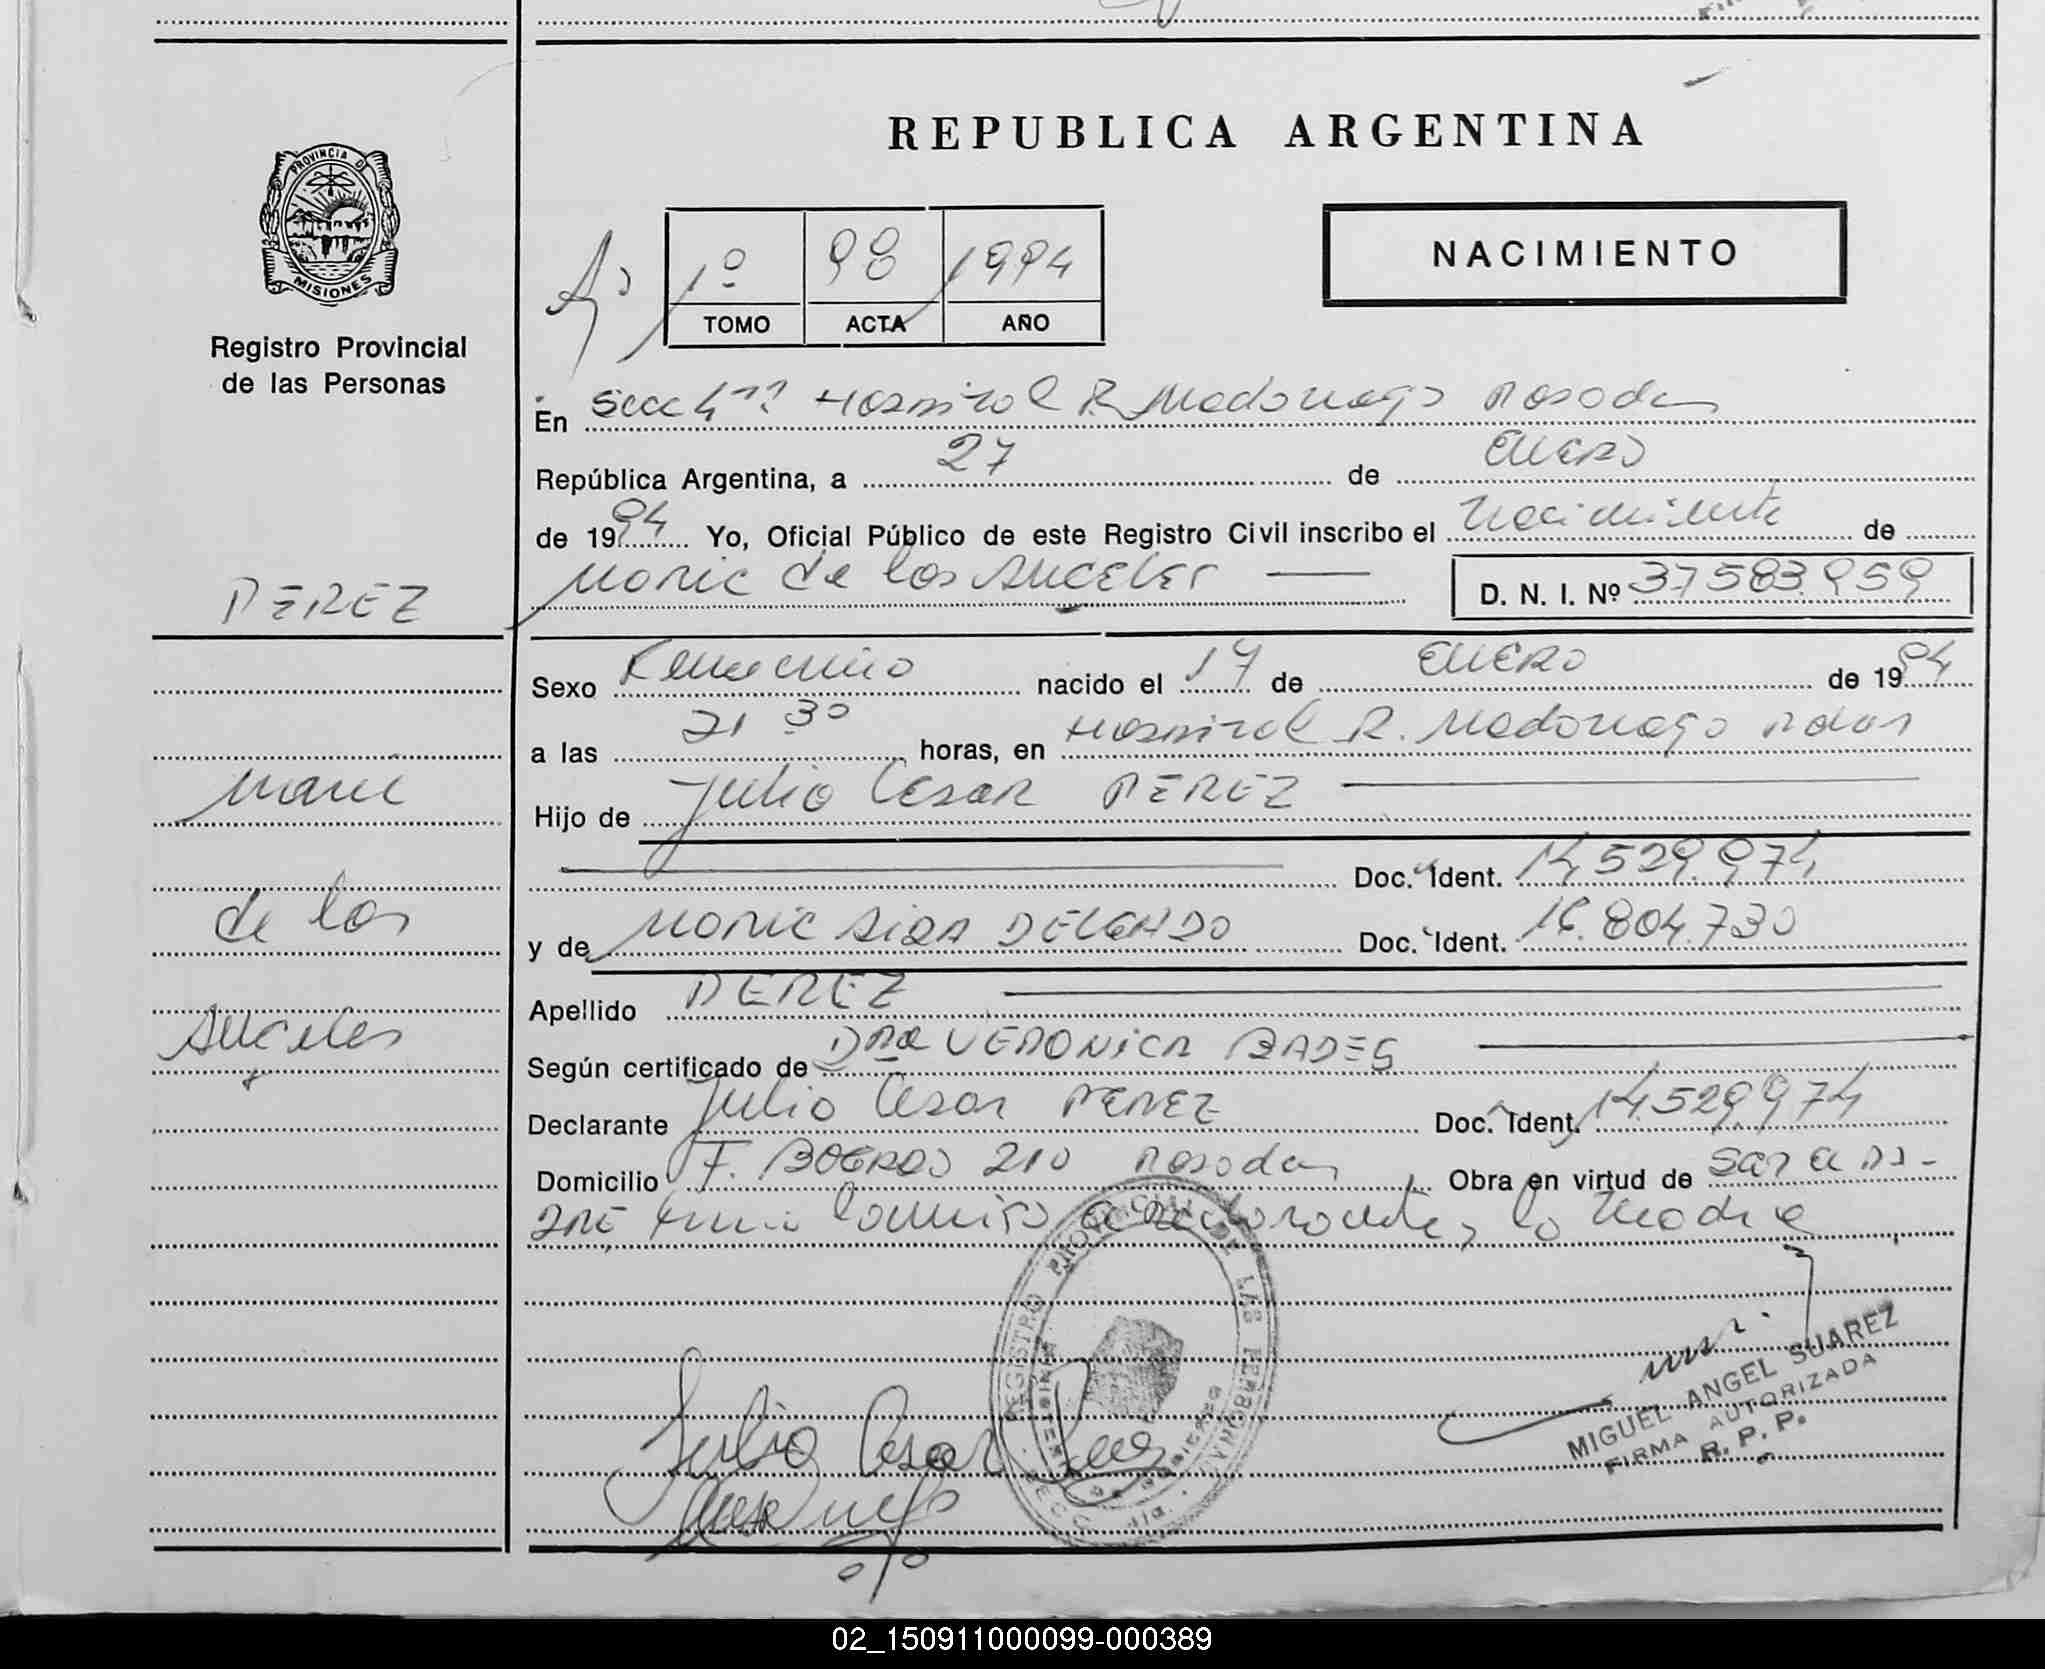 REPUBLICA ARGENTINA
PROVINCIA DE
MISIONES
Registro Provincial
de las Personas
1º 98 1994
TOMO ACTA AÑO
NACIMIENTO
En Secc 4ta Hospital R. Madariaga Posadas
República Argentina, a 27 de ENERO
de 1994 Yo, Oficial Público de este Registro Civil inscribo el Nacimiento de
PEREZ
Maria de los ANGELES D. N. I. Nº 37583.959
Sexo Femenino nacido el 17 de ENERO de 1994
a las 21 30 horas, en Hospital R. Madariaga Pdas
Maria
Hijo de Julio Cesar PEREZ
Doc. Ident. 14.529.974
de los
y de Maria AIDA DELGADO Doc. Ident. 16.804.730
Apellido PEREZ
Angeles
Según certificado de Dra VERONICA
Declarante Julio Cesar PEREZ Doc. Ident. 14.529.974
Domicilio F. BOGADO 210 Posadas Obra en virtud de ser el PA-
DRE, firma la madre
REGISTRO PROVINCIAL DE LAS PERSONAS
Julio Cesar Perez
MIGUEL ANGEL SUAREZ
FIRMA AUTORIZADA
R. P. P.
02_150911000099-000389